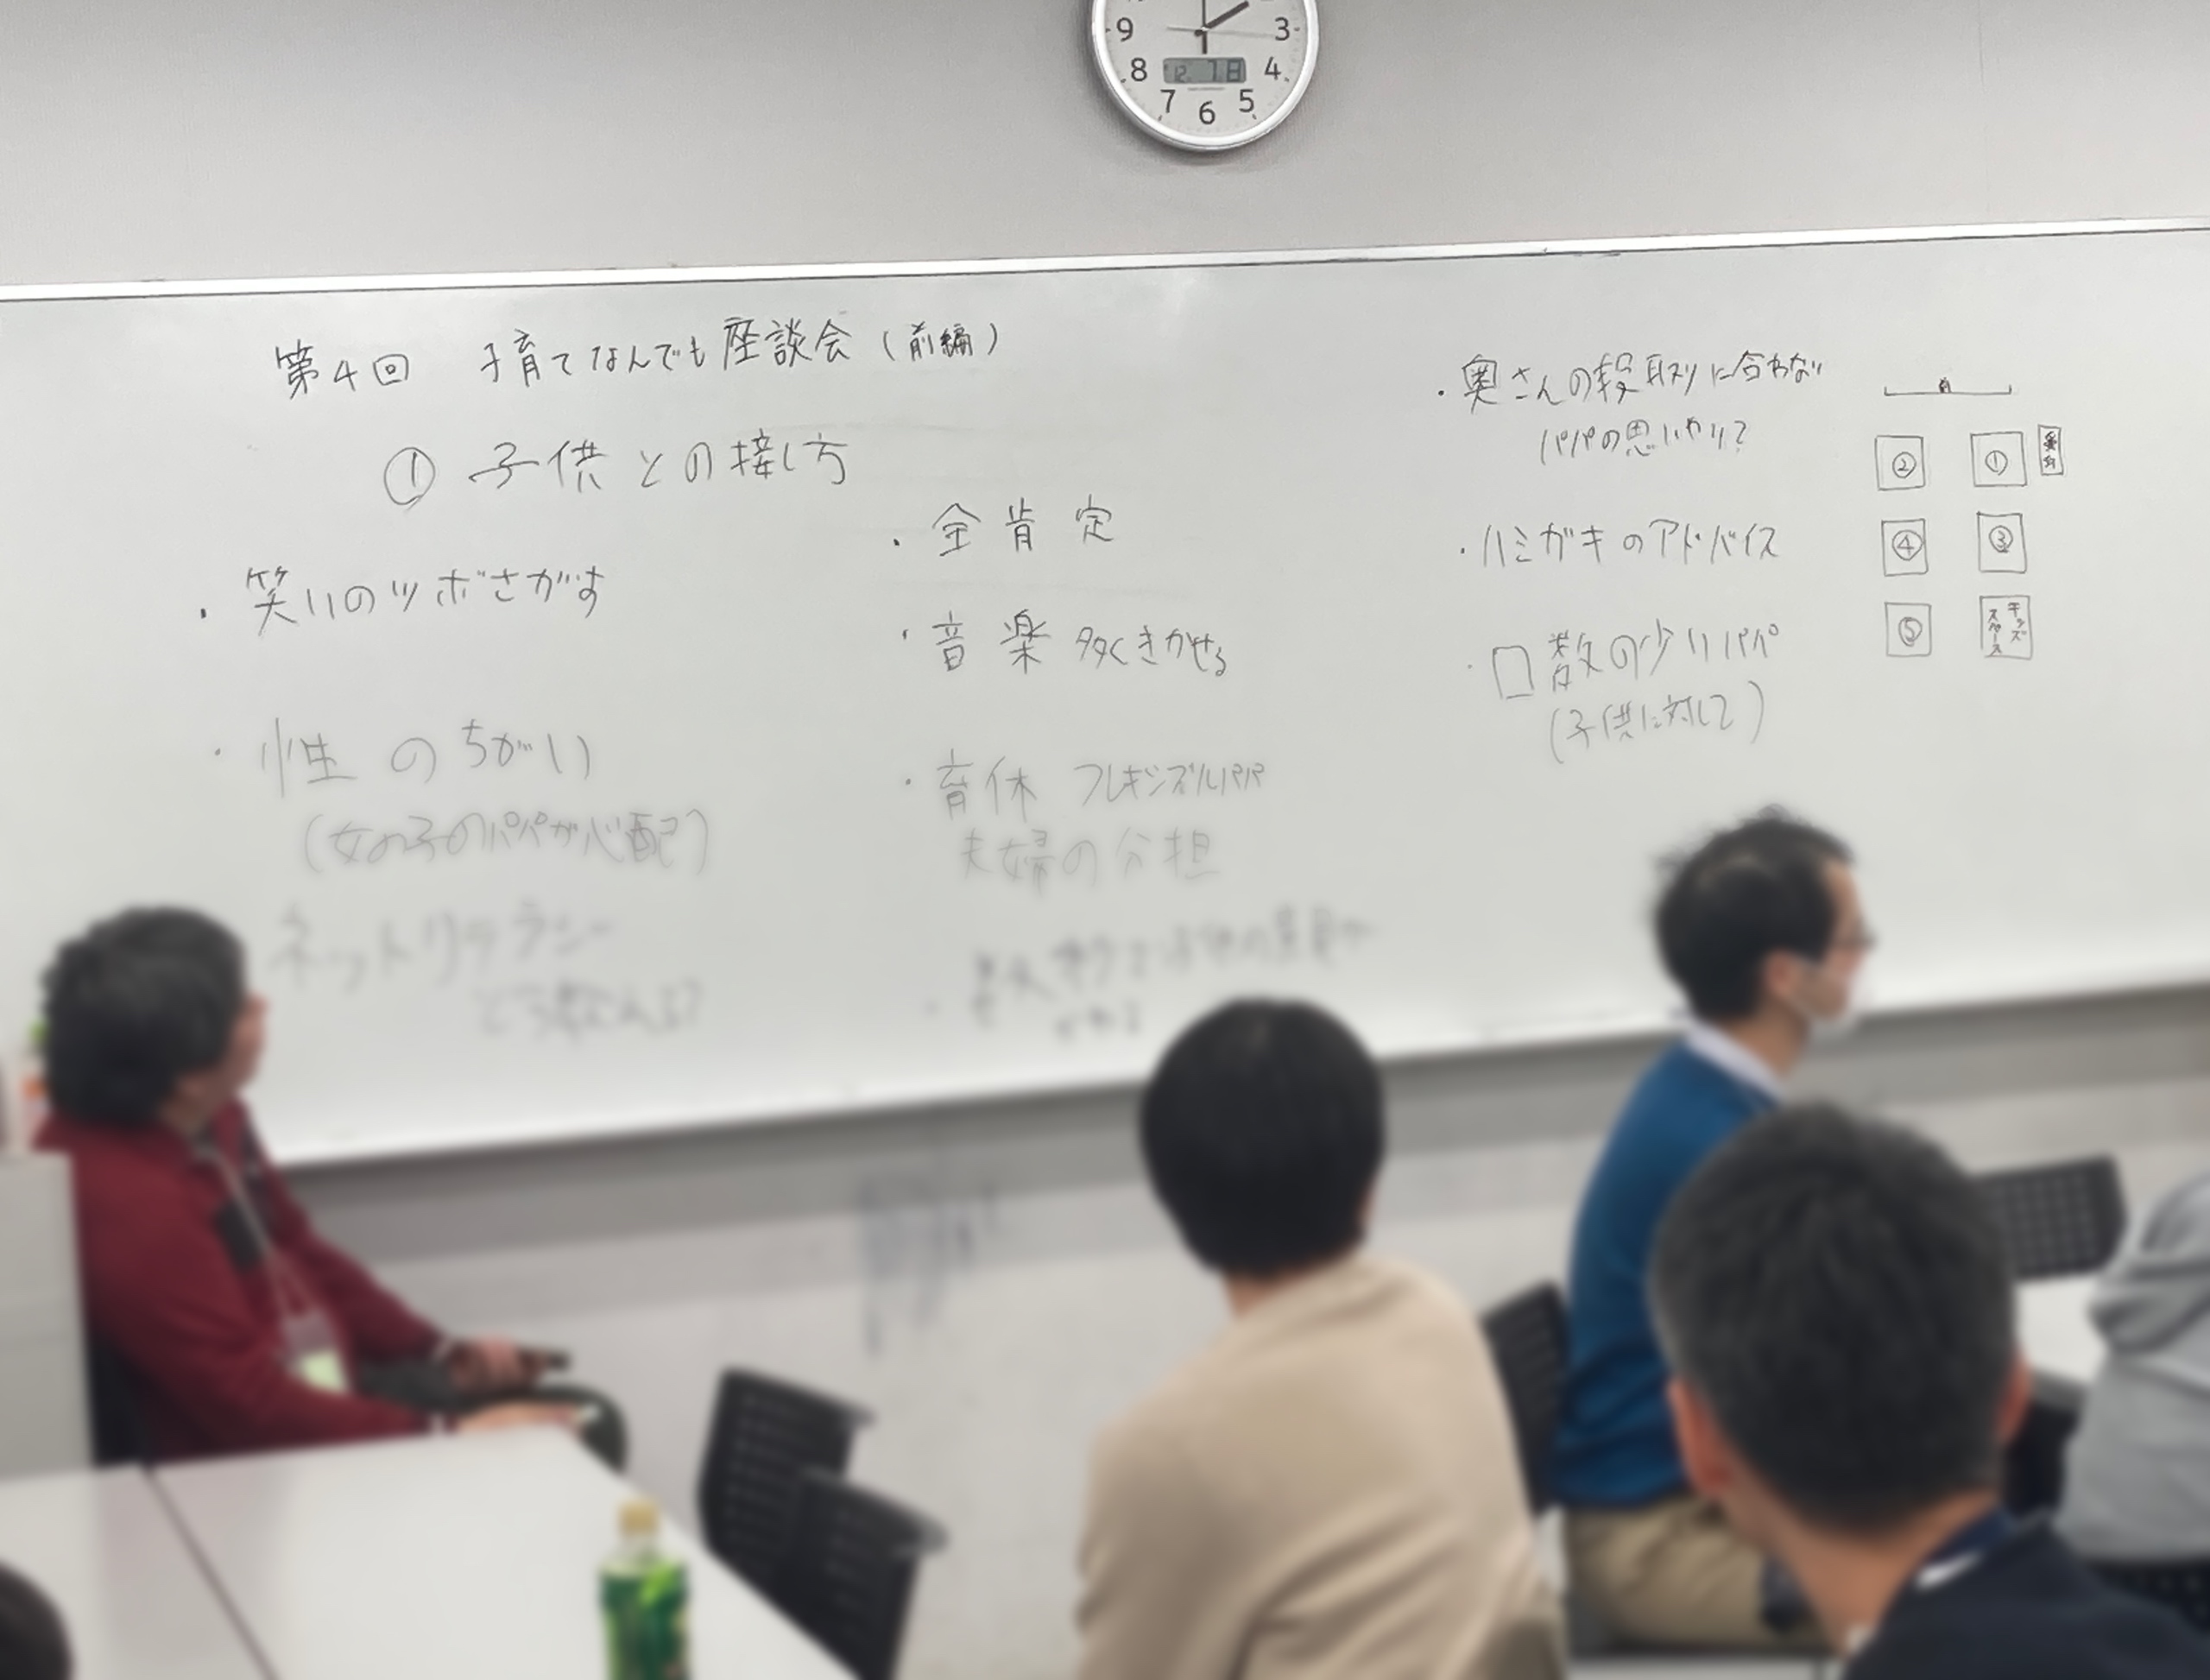 9 3
8 4
7 6 5
第4回 子育てなんでも座談会(前編)
① 子供との接し方
・笑いのツボさがす
・性のちがい
(女の子のパパが心配)
ネットリテラシー
・全肯定
・音楽 多くきかせる
・育休 フレキシブルパパ
夫婦の分担
・奥さんの段取りに合わない
パパの思いやり?
・ハミガキのアドバイス
・口数の少いパパ
(子供に対して)
前
② ① 受付
④ ③
⑤ キッズスペース